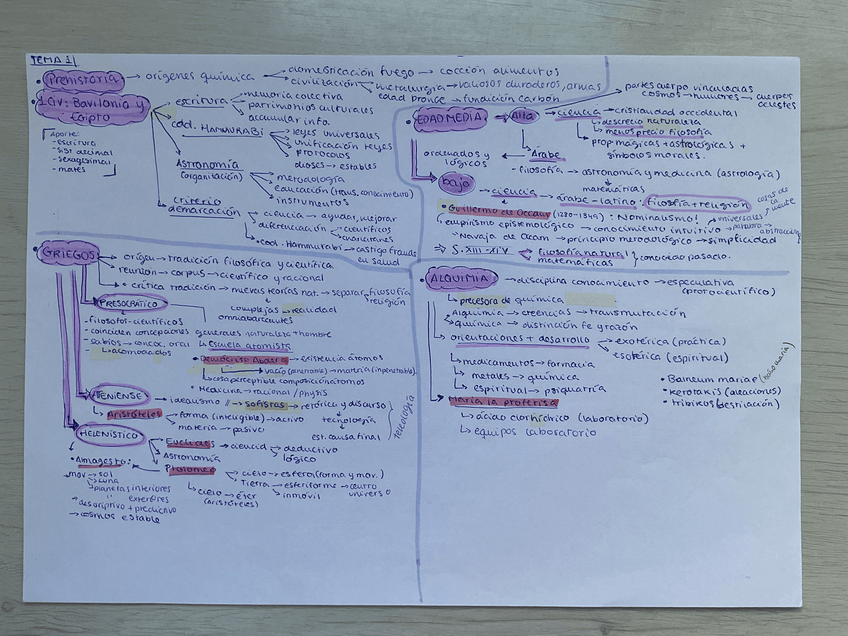 TEMA 1
• Prehistoria → orígenes química → domesticación fuego → cocción alimentos
→ civilización → metalurgia → valiosos duraderos, armas
edad bronce → fundición carbón
• 1ª civ: Bavilonia y Egipto
Aporte:
- escritura
- sist decimal
- sexagesimal
- mates
→ escritura → memoria colectiva
→ patrimonios culturales
→ acumular info.
→ cod. HAMMURABI → leyes universales
→ unificación leyes
→ protocolos
dioses → estables
→ ASTRONOMÍA (organización) → metodología
→ educación (trans. conocimiento)
→ instrumentos
→ criterio demarcación → ciencia → ayudar, mejorar
→ diferenciación → científicos
→ charlatanes
• cod. Hammurabi → castigo fraude en salud
• GRIEGOS
→ origen → tradición filosófica y científica
→ reunión → corpus → científico y racional
• crítica tradición → nuevas teorías nat. → separar filosofía religión
complejas → realidad
omniabarcantes
→ PRESOCRÁTICO
- filósofos-científicos
- coinciden concepciones generales naturaleza + hombre
- sabios → conoc. oral
→ acomodados
→ Escuela atomista
• Demócrito Abdera → existencia átomos
→ vacío → materia (impenetrable)
→ cosa perceptible composición átomos
• Medicina → racional / physis
→ ATENIENSE → idealismo // → sofistas → retórica y discurso
→ Aristóteles → forma (inteligible) → activo
materia → pasivo
est. causa final
teleología
→ HELENÍSTICO → Euclides → ciencia → deductivo
lógico
→ Astronomía
→ Ptolomeo → cielo → esfera (forma y mov.)
→ Tierra → esferiforme → centro universo
→ inmóvil
→ cielo → éter (aristóteles)
• Almagesto:
mov → sol
→ luna
→ planetas interiores
" exteriores
→ descriptivo + predictivo
→ cosmos estable
EDAD MEDIA → Alta → ciencia → cristiandad occidental
→ descrédito naturaleza
→ menosprecio filosofía
→ prop mágicas + astrológicas + símbolos morales.
→ partes cuerpo vinculadas
cosmos → humores → cuerpos celestes
→ Árabe
ordenados y lógicos
- filosofía → astronomía y medicina (astrología)
→ matemáticas
→ baja → ciencia → árabe-latino: filosofía + religión
• Guillermo de Occam (1280-1349): Nominalismo!
universales
palabra → abstracción
→ empirismo epistemológico → conocimiento intuitivo
→ Navaja de Ocam → principio metodológico → simplicidad
⇒ S. XIII-XIV → filosofía natural
matemáticas
conocido pasado.
ALQUIMIA → disciplina conocimiento → especulativa (protocientífico)
→ precesora de química
Alquimia → creencias → transmutación
→ química → distinción fe y razón
→ orientaciones + desarrollo → exotérica (práctica)
→ esotérica (espiritual)
→ medicamentos → farmacia
→ metales → química
→ espiritual → psiquiatría
→ María la profetisa
→ ácido clorhídrico (laboratorio)
→ equipos laboratorio
• Balneum mariae (baño maría)
• kerotakis (aleaciones)
• tribikos (destilación)